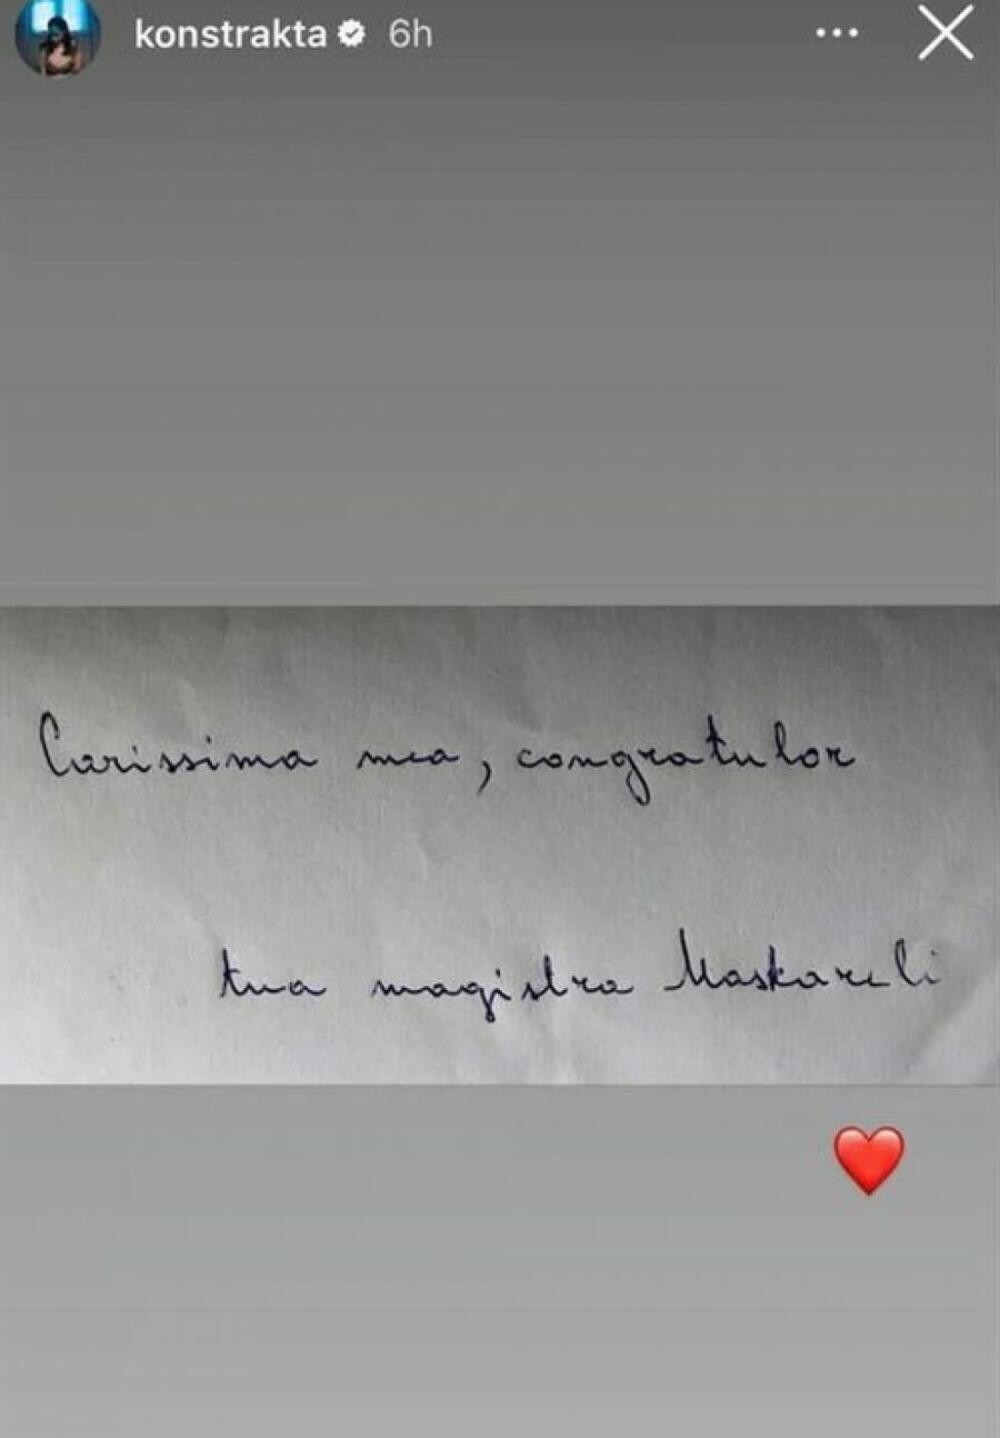 konstrakta 6h
Carissima mea, congratulor
tua magistra Maskareli